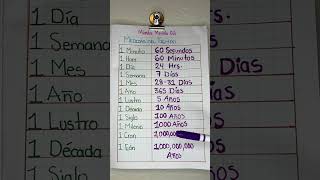 1 Minuto 60 Segundos
1 Hora 60 Minutos
1 Día 24 Hrs.
1 Semana 7 Días
1 Mes 28-31 Días
1 Año 365 Días
1 Lustro 5 Años
1 Década 10 Años
1 Siglo 100 Años
1 Milenio 1000 Años
1 Cron 1,000,00
1 Eón 1,000,000,000
Años
1 Día
1 Semana
1 Mes
1 Año
1 Lustro
1 Década
1 Siglo
Días